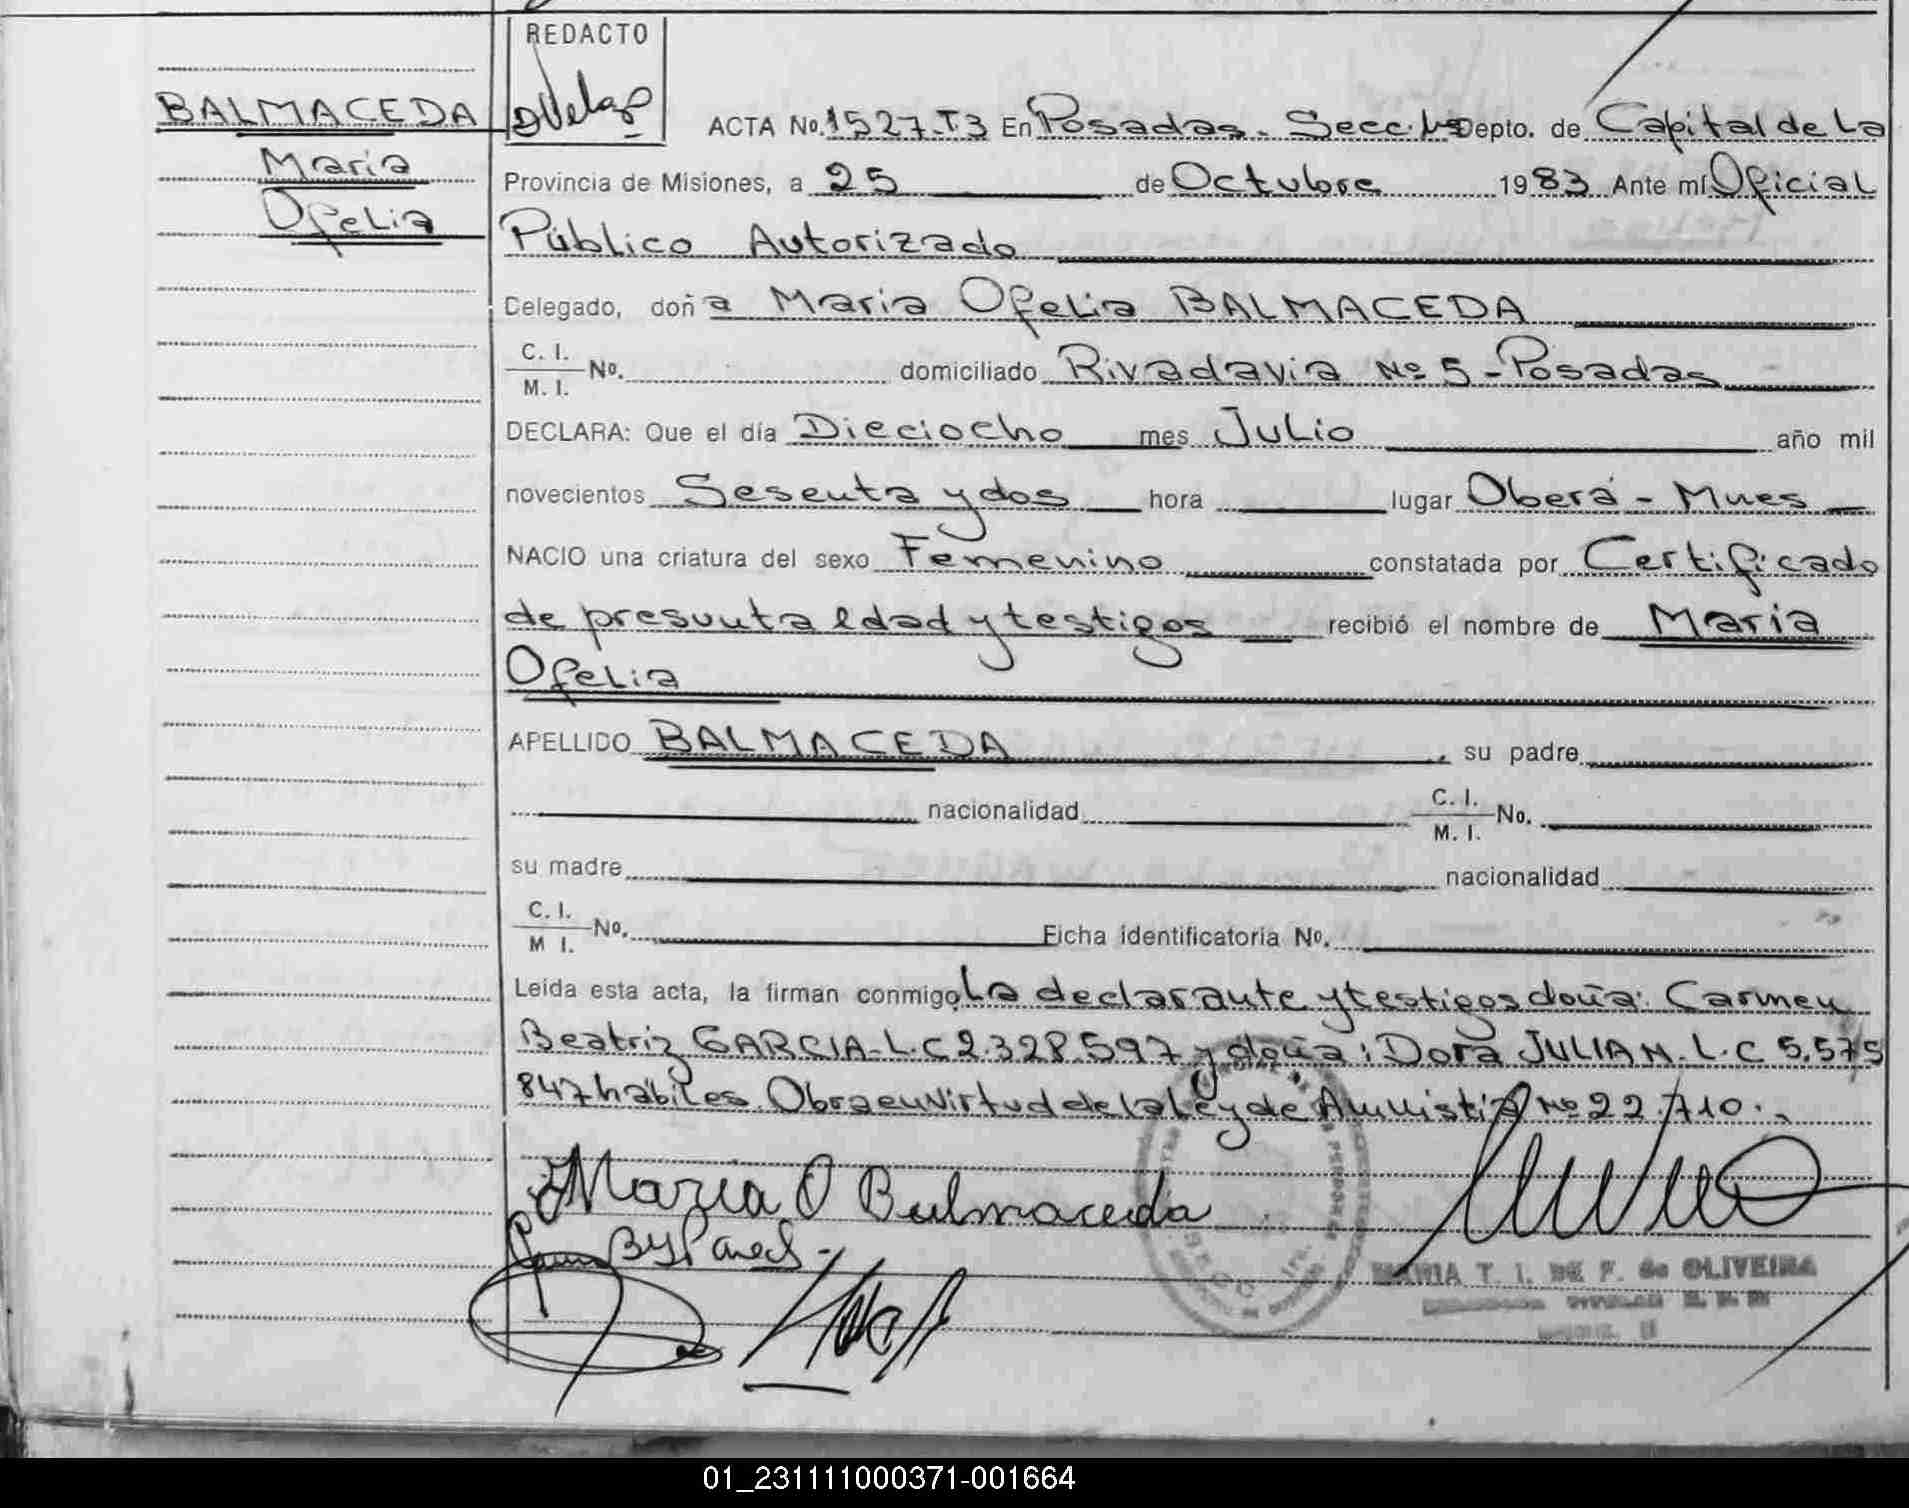 REDACTO
BALMACEDA
Maria
Ofelia
ACTA No. 1527-T3 En Posadas - Secc. Depto. de Capital de la
Provincia de Misiones, a 25 de Octubre 1983 Ante mí Oficial
Público Autorizado
Delegado, doña Maria Ofelia BALMACEDA
C. I.
M. I. No. domiciliado Rivadavia Nº 5 - Posadas
DECLARA: Que el día Dieciocho mes Julio año mil
novecientos Sesenta y dos hora lugar Oberá - Mnes
NACIO una criatura del sexo Femenino constatada por Certificado
de presunta edad y testigos recibió el nombre de Maria
Ofelia
APELLIDO BALMACEDA, su padre
nacionalidad C. I.
M. I. No.
su madre nacionalidad
C. I.
M I. No. Ficha identificatoria No.
Leída esta acta, la firman conmigo La declarante y testigos doña: Carmen
Beatriz GARCIA - L.C 2.328.597 y doña: Dora JULIAN - L.C 5.575
847 habiles. Obra en Virtud de la Ley de Amnistia Nº 22.710.
Maria O Balmaceda
MARIA T. I. DE F. de OLIVEIRA
01_231111000371-001664